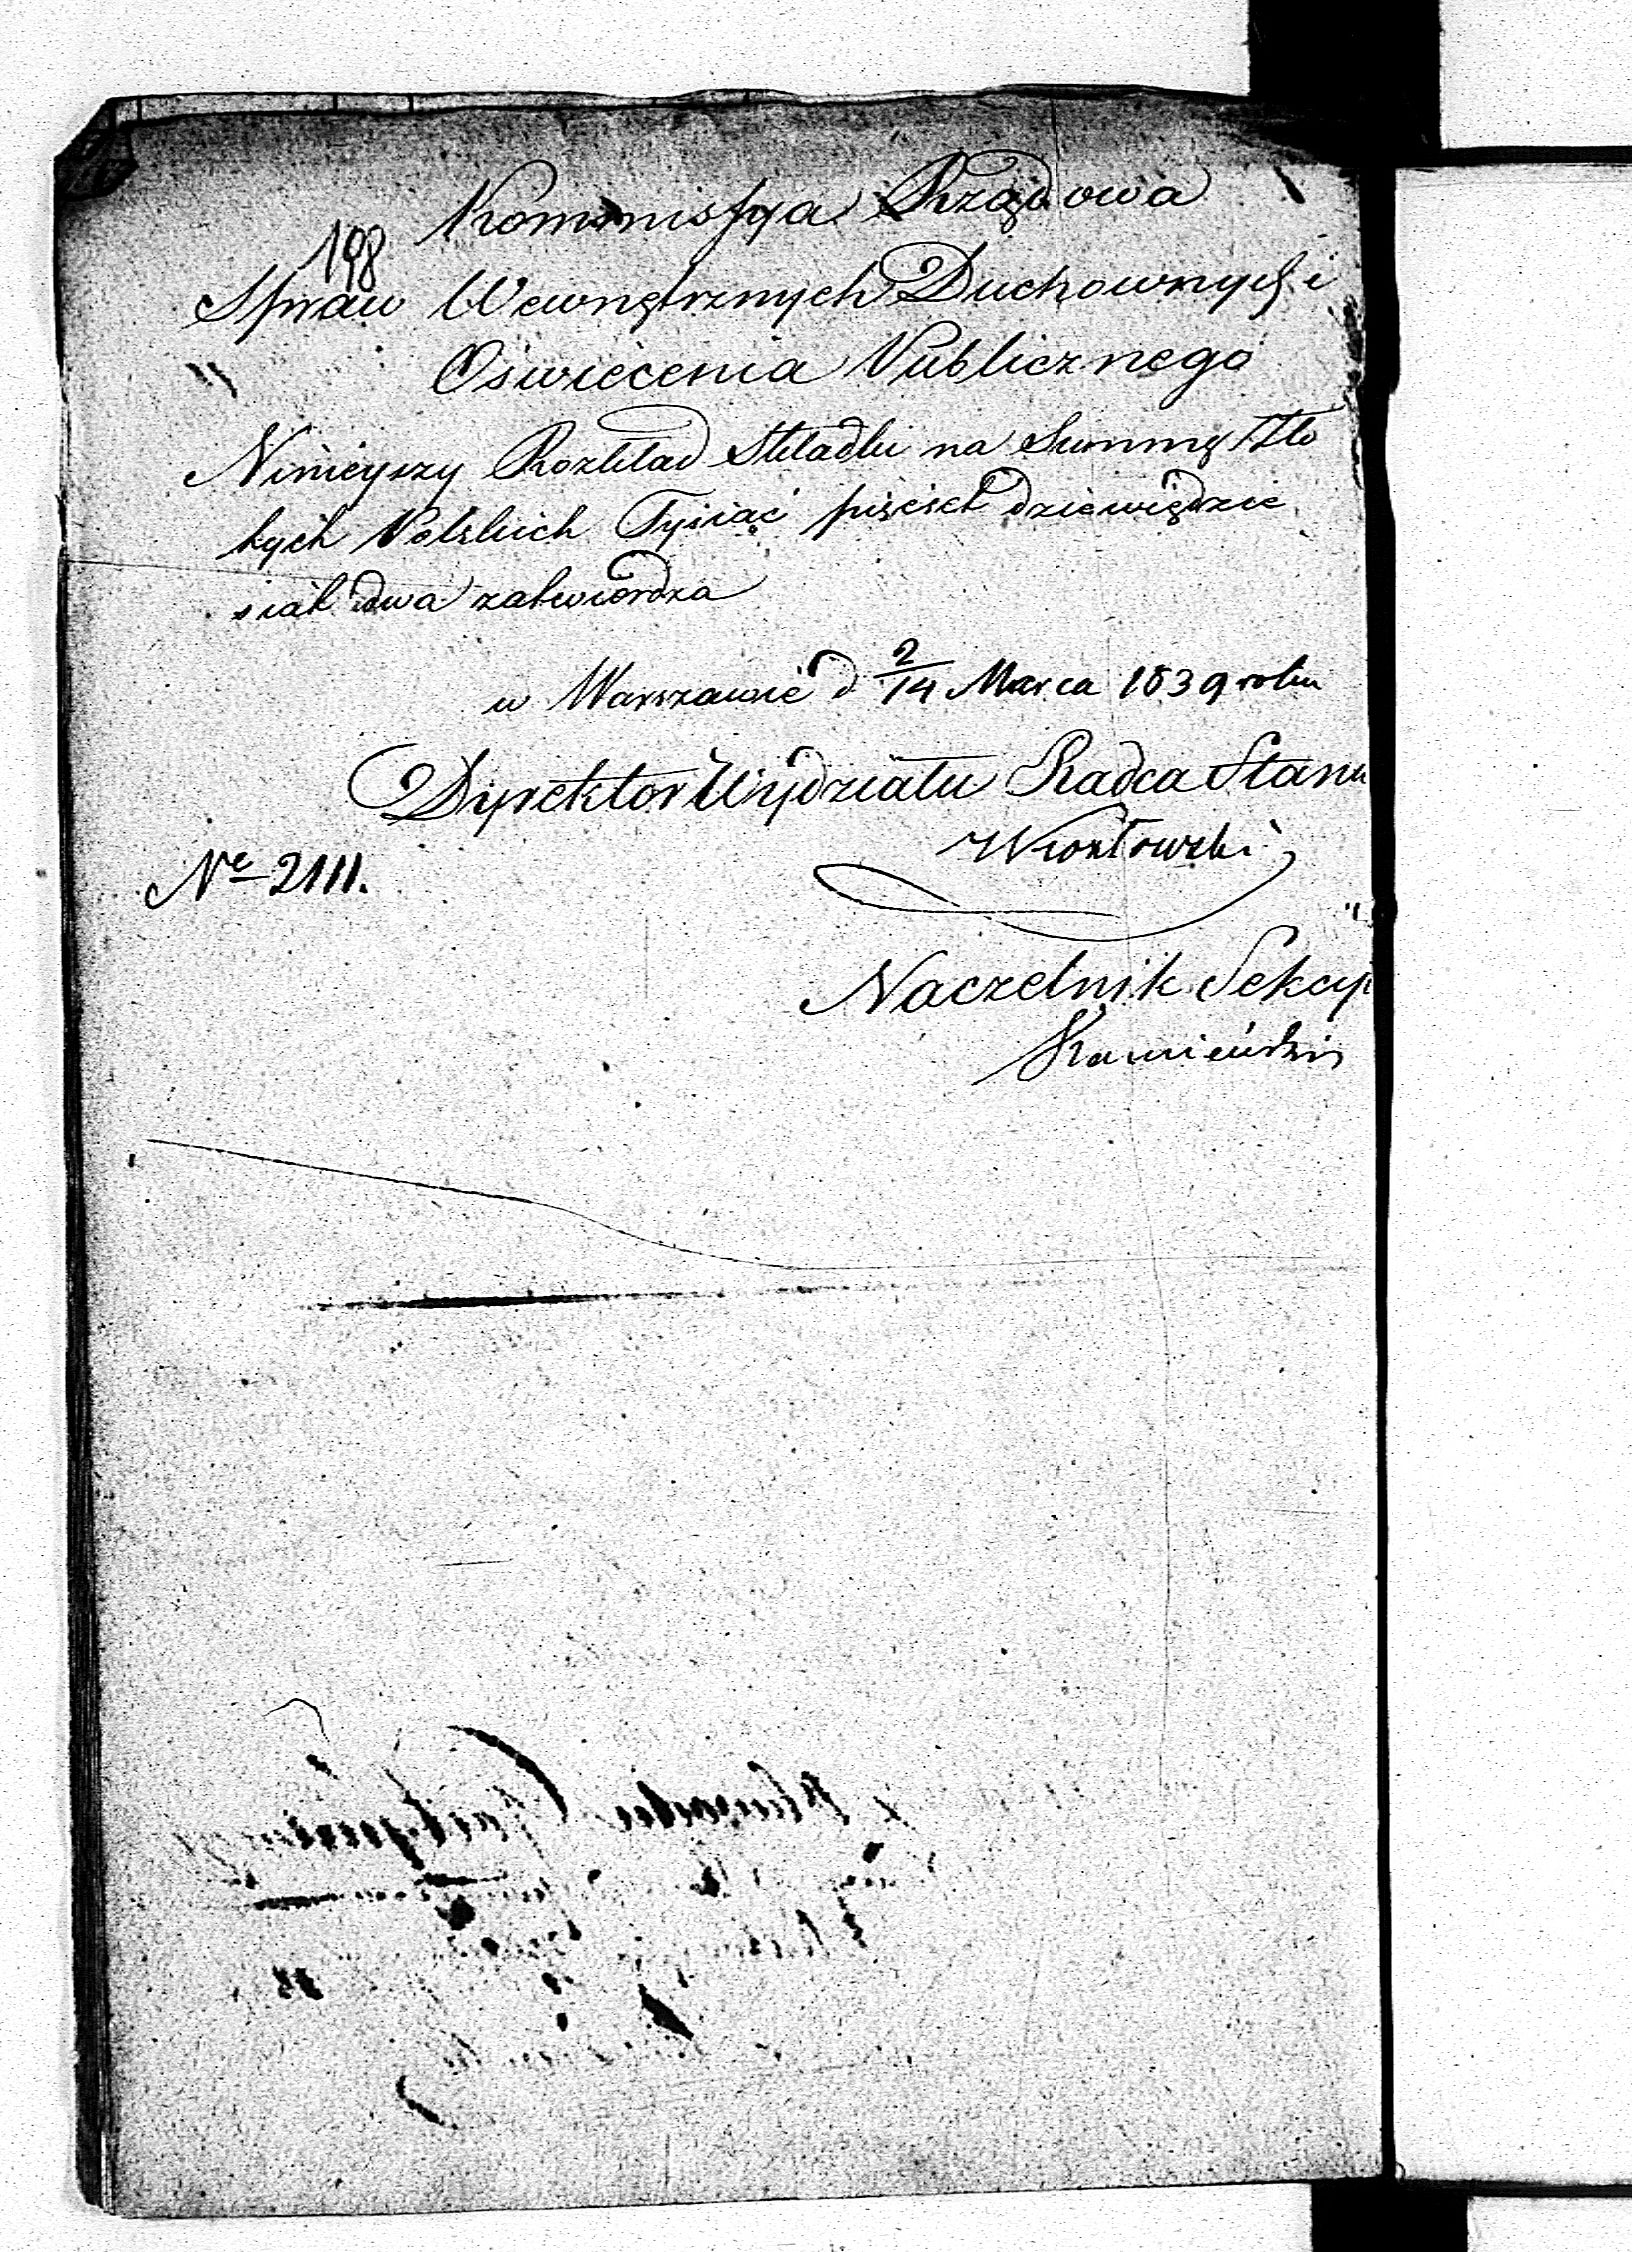 198
Kommissya Rządowa
Spraw Wewnętrznych Duchownych i
Oświecenia Publicznego
Ninieyszy Rozkład Składki na Summę Zło
tych Polskich Tysiąc pięćset dziewięćdzie
siąt dwa zatwierdza
w Warszawie d 2/14 Marca 1839 roku
Dyrektor Wydziału Radca Stanu
No 2111.
Naczelnik Sekcyi
Kamieński